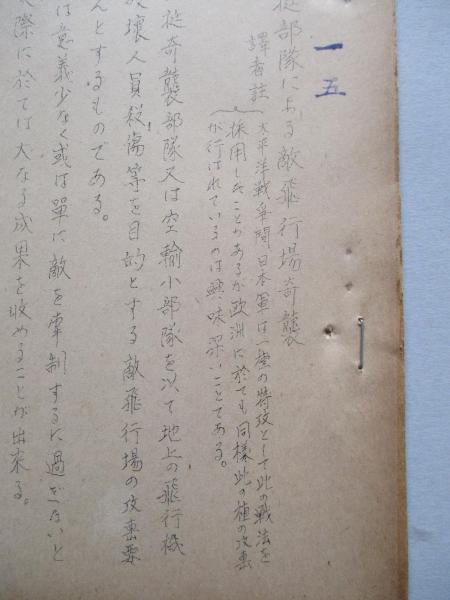 一五
挺部隊による敵飛行場奇襲
譯者註
太平洋戦争間日本軍は一種の特攻として此の戦法を
採用したことがあるが欧洲に於ても同様此の種の攻撃
が行はれているのは興味深いことである。
挺奇襲部隊又は空輸小部隊を以て地上の飛行機
破壊人員殺傷等を目的とする敵飛行場の攻撃要
んとするものである。
は意義少なく或は單に敵を牽制するに過ぎないと
際に於ては大なる成果を收めることが出来る。